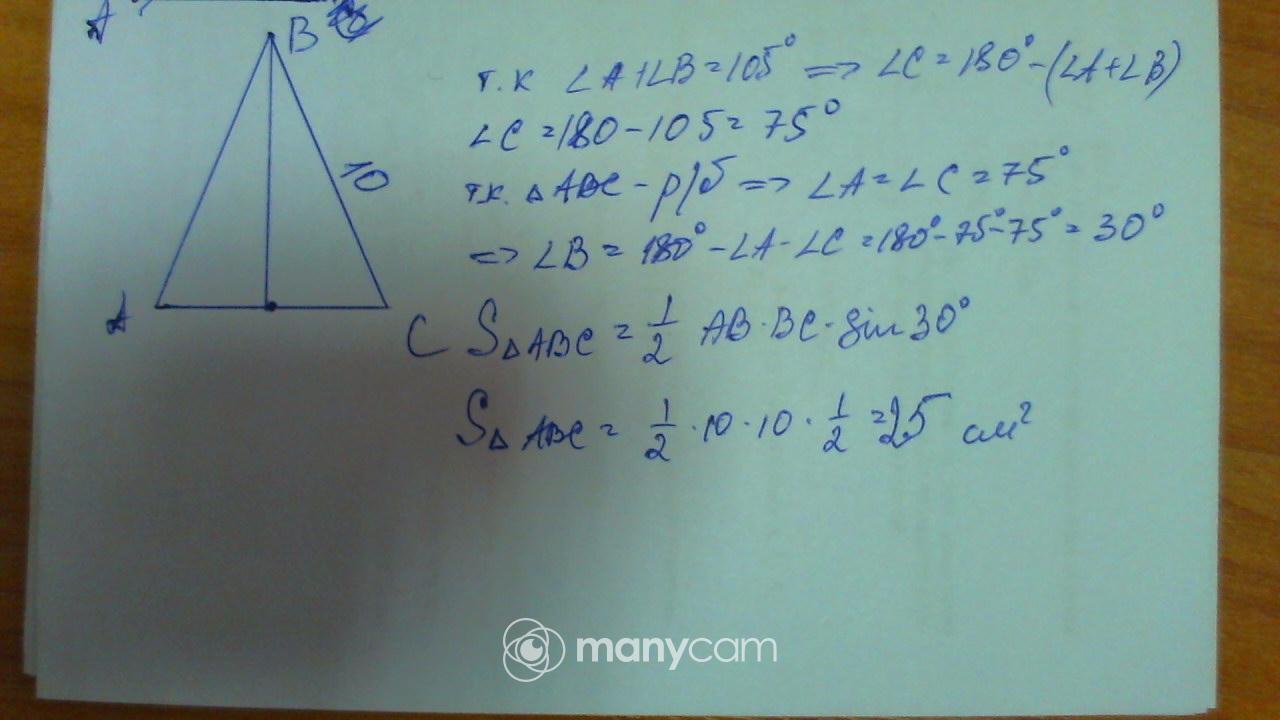 A
B
т.к ∠A+∠B=105° => ∠C=180°-(∠A+∠B)
∠C=180-105=75°
10
т.к. △ABC - р/б => ∠A=∠C=75°
=> ∠B=180°-∠A-∠C=180°-75°-75°=30°
A
C S△ABC = 1/2 AB·BC·sin30°
S△ABC = 1/2·10·10·1/2=25 см²
manycam